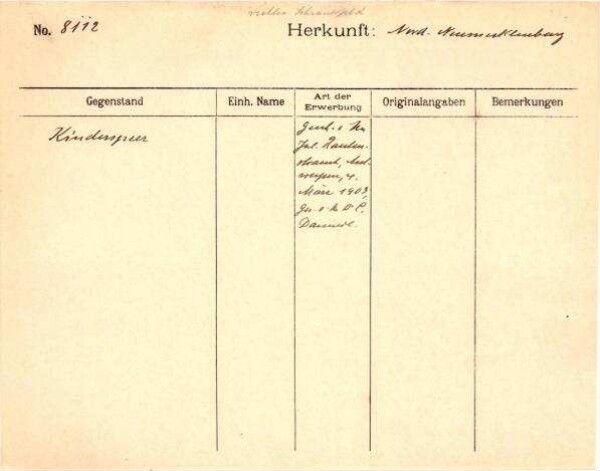 No. 8112
Herkunft: Nord-Neumecklenburg
Gegenstand
Einh. Name
Art der
Erwerbung
Originalangaben
Bemerkungen
Kinderspeer
Jul. Rauten-
strauch, Ant-
werpen, 4.
März 1903,